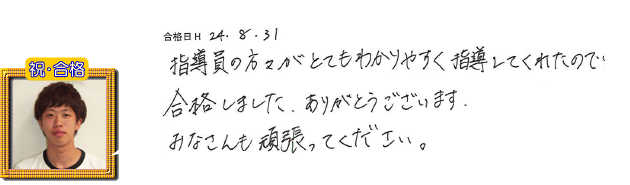 合格日 H 24.8.31
指導員の方々がとてもわかりやすく指導してくれたので
合格しました。ありがとうございます.
みなさんも頑張ってください。
祝・合格